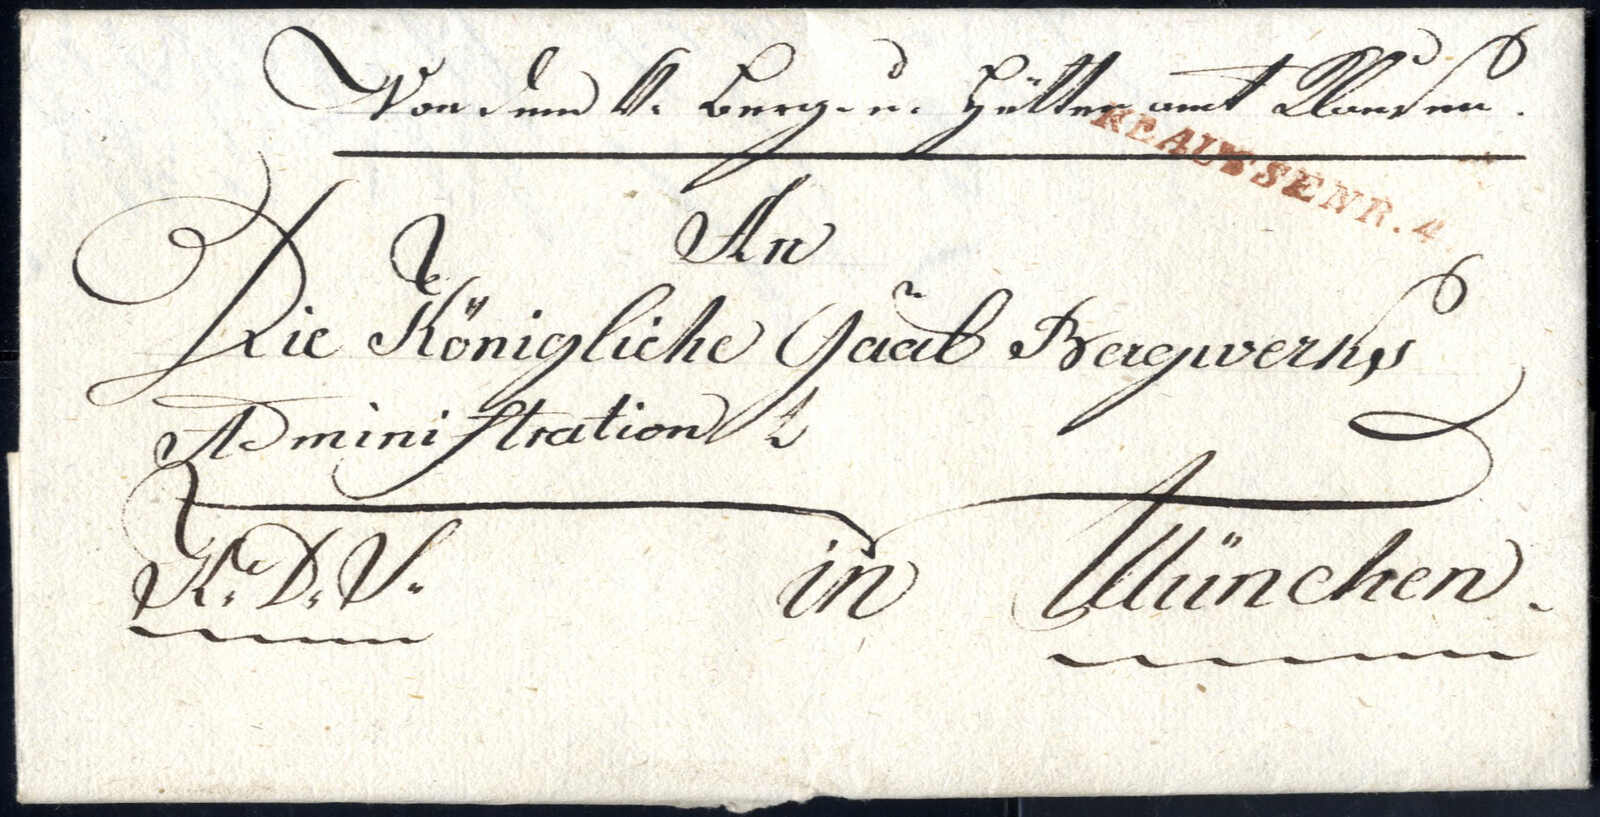 Von dem K. Berg- u. Hüttenamt Klausen.
KLAUSSEN R. 4.
An
Die Königliche Gäal Bergwerks
Administration
K. D. S.
in München.